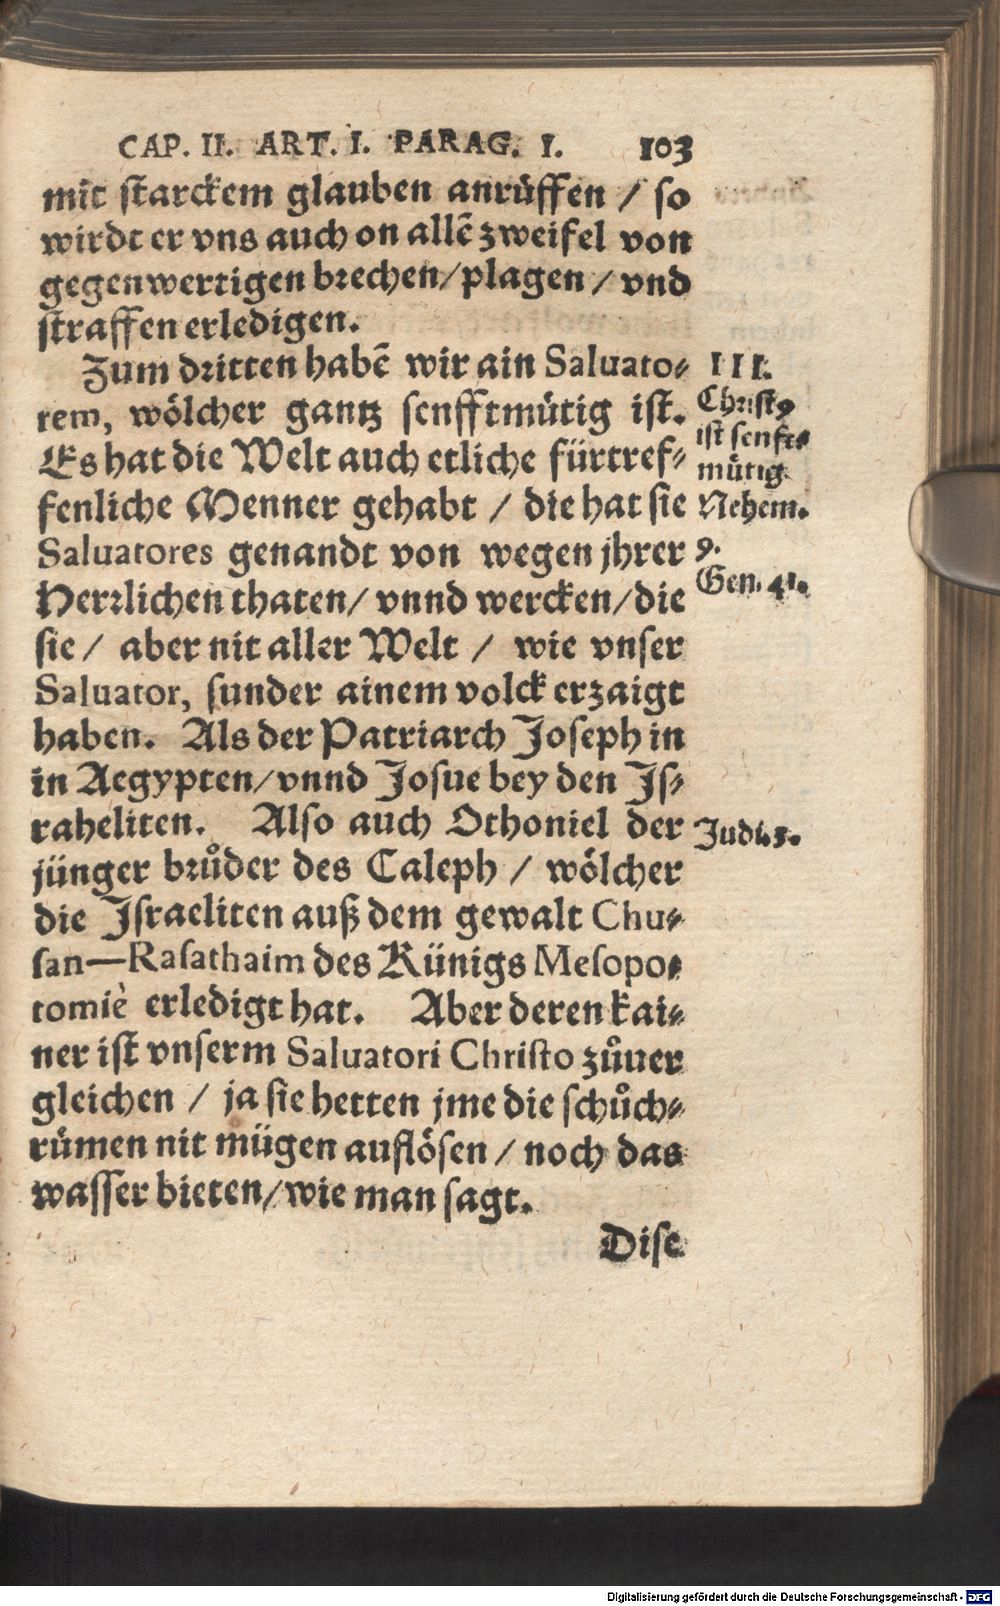 CAP. II. ART. I. PARAG. I. 103
mit starckem glauben anrüffen / so
wirdt er vns auch on allē zweifel von
gegenwertigen brechen/plagen / vnd
straffen erledigen.
Zum dritten habē wir ain Saluato⸗
rem, wölcher gantz senfftmütig ist.
Es hat die Welt auch etliche fürtref⸗
fenliche Menner gehabt / die hat sie
Saluatores genandt von wegen jhrer
Herrlichen thaten/ vnnd wercken/die
sie / aber nit aller Welt / wie vnser
Saluator, sunder ainem volck erzaigt
haben. Als der Patriarch Joseph in
in Aegypten/vnnd Josue bey den Js⸗
raheliten. Also auch Othoniel der
jünger brůder des Caleph / wölcher
die Jsraeliten auß dem gewalt Chu⸗
san—Rasathaim des Künigs Mesopo⸗
tomiè erledigt hat. Aber deren kai⸗
ner ist vnserm Saluatori Christo zůuer
gleichen / ja sie hetten jme die schůch⸗
rümen nit mügen auflösen / noch das
wasser bieten/wie man sagt.
Dise
III.
Christꝰ
ist senft⸗
mütig
Nehem.
9.
Gen. 41.
Judic. 3.
Digitalisierung gefördert durch die Deutsche Forschungsgemeinschaft - DFG